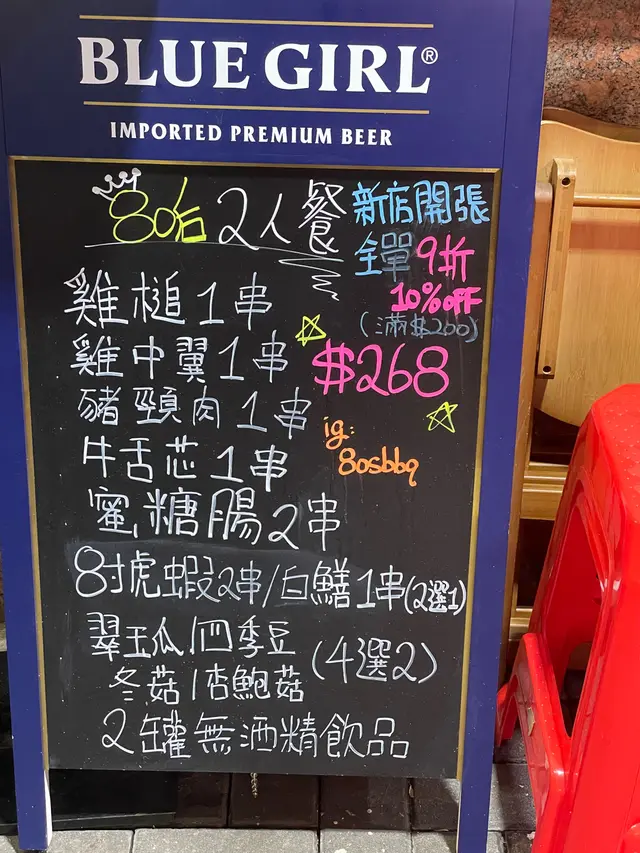 BLUE GIRL®
IMPORTED PREMIUM BEER
80后 2人餐
新店開張
全單9折
10% OFF
(滿$200)
雞槌1串
雞中翼1串
$268
豬頸肉1串
ig:
80sbbq
牛舌芯1串
蜜糖腸2串
8吋虎蝦2串/白鱔1串(2選1)
翠玉瓜/四季豆
(4選2)
冬菇/杏鮑菇
2罐無酒精飲品